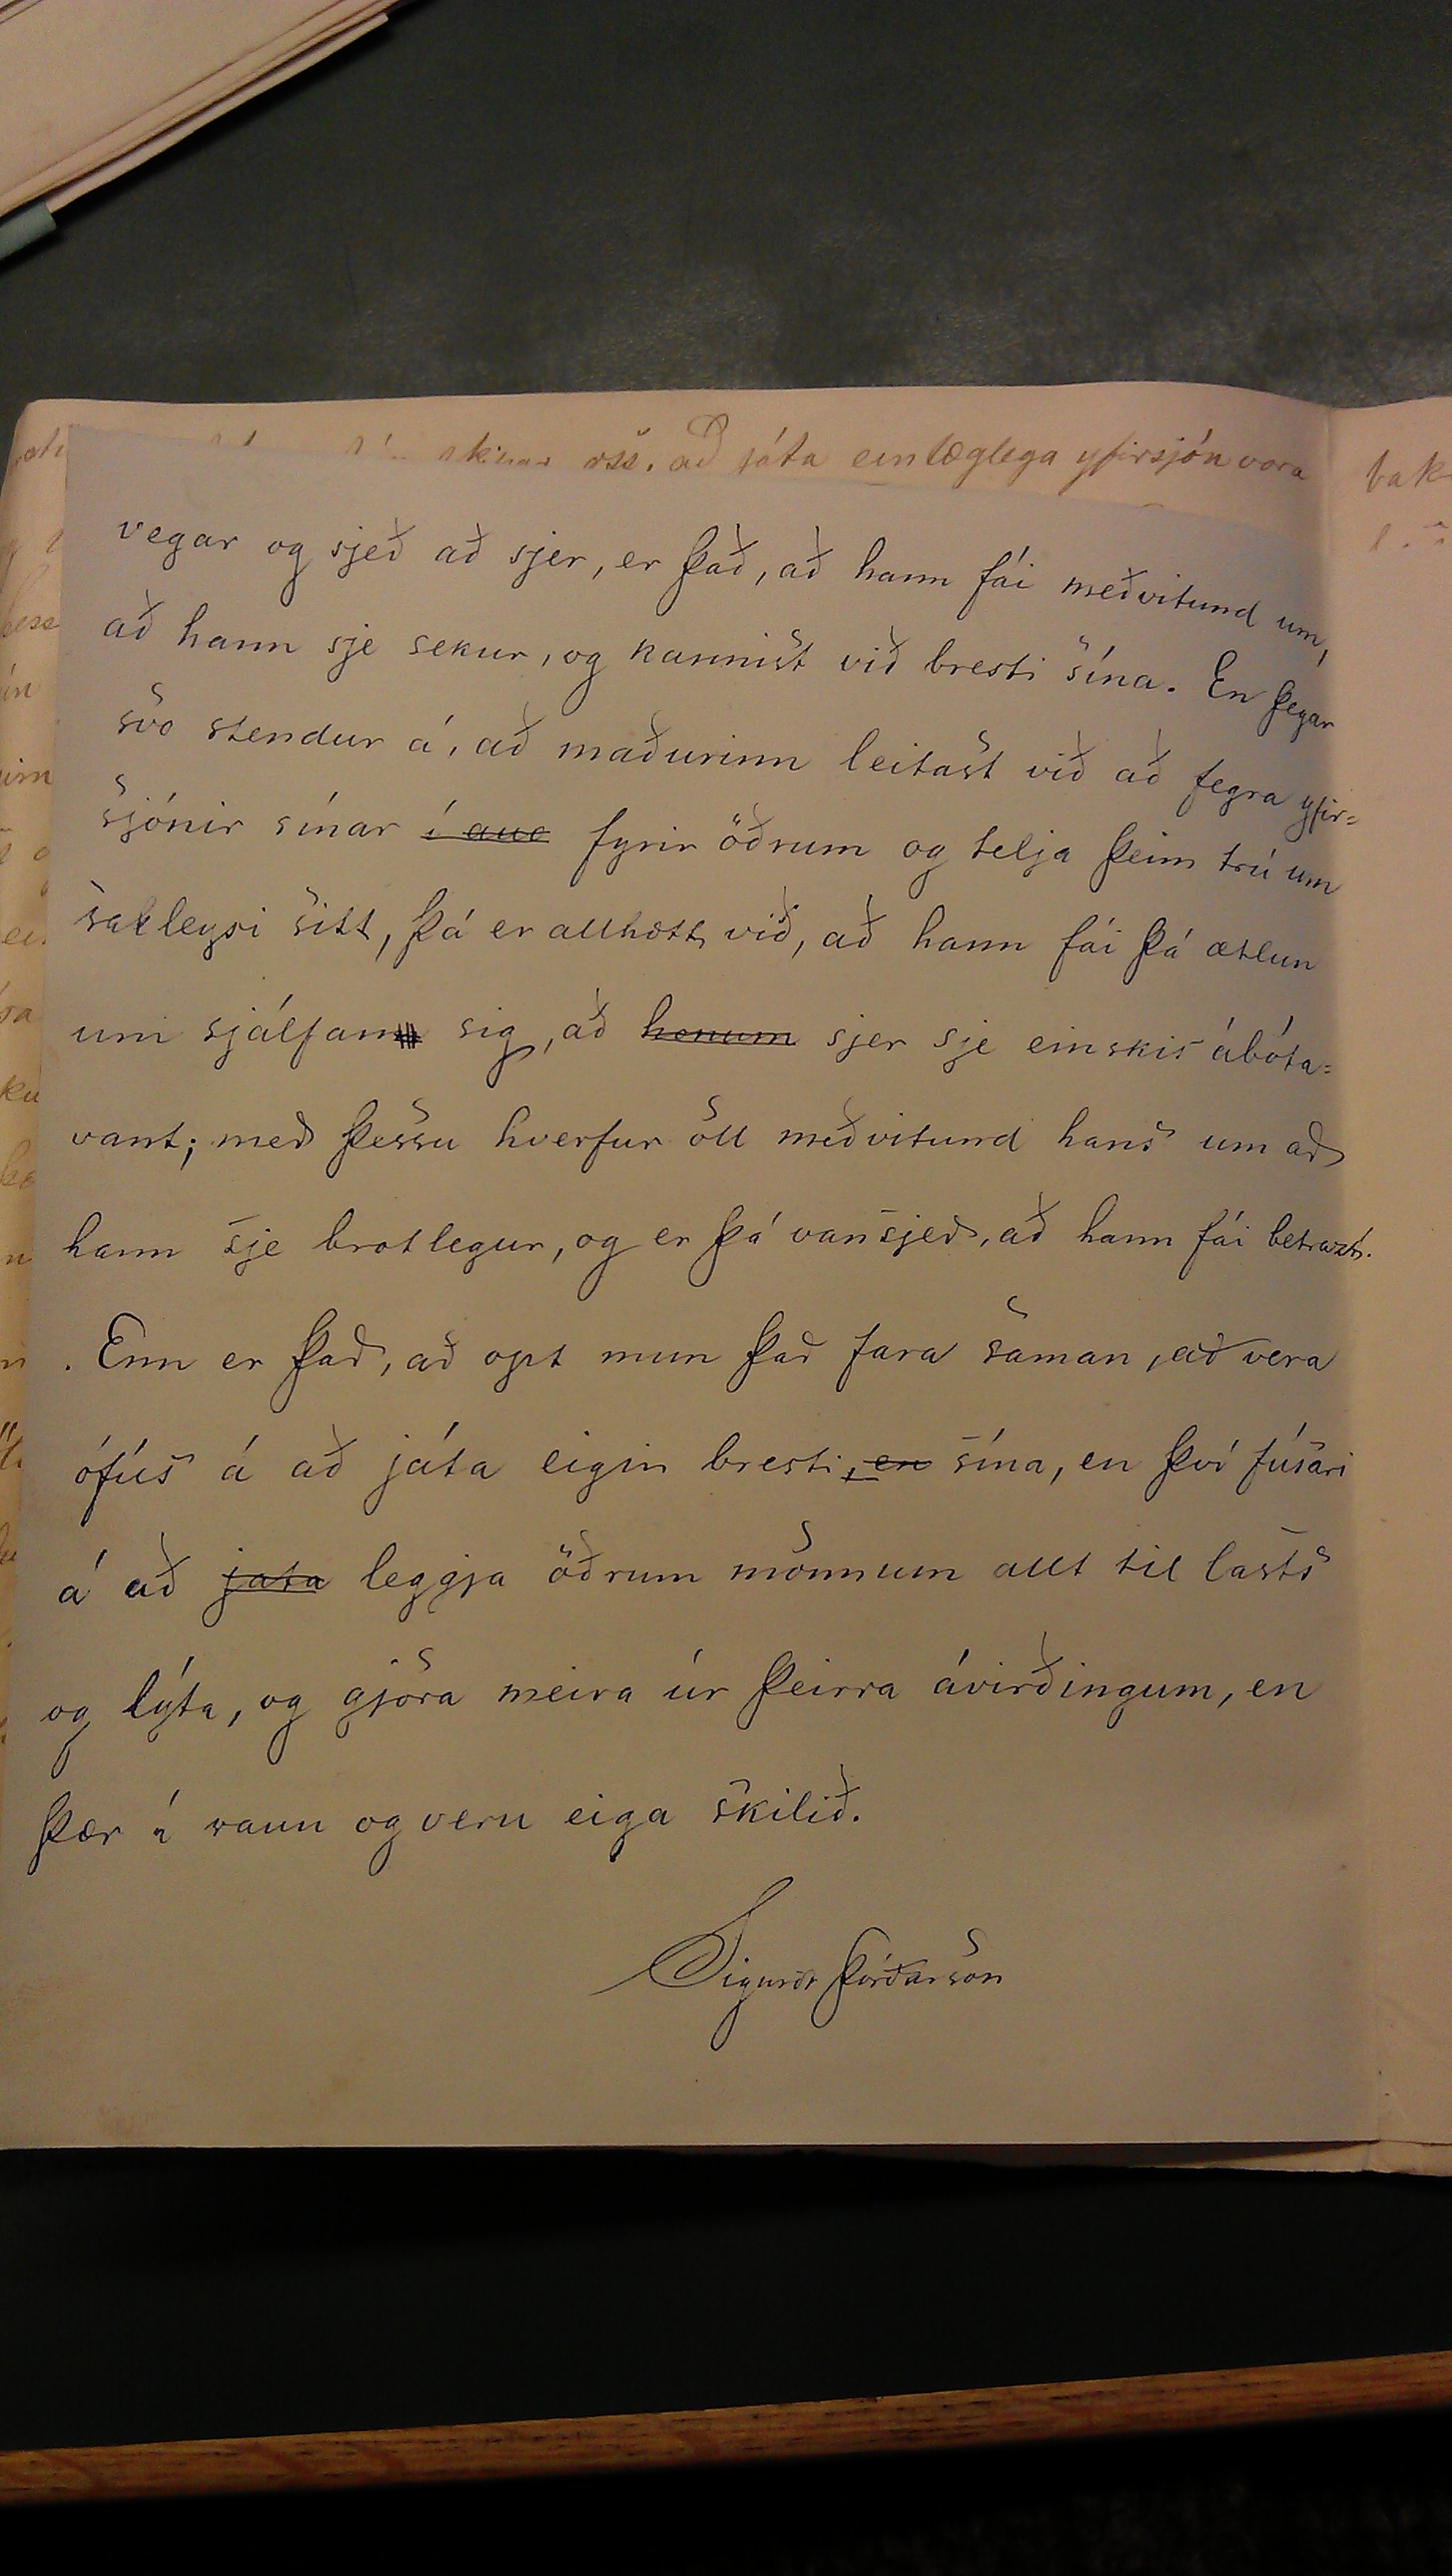 oss, að játa einlæglega yfirsjón vora
vegar og sjeð að sjer, er það, að hann fái meðvitund um,
að hann sje sekur, og kannist við bresti sína. En þegar
svo stendur á, að maðurinn leitast við að fegra yfir=
sjónir sínar í aug fyrir öðrum og telja þeim trú um
sakleysi sitt, þá er allhætt við, að hann fái þá ætlun
um sjálfan sig, að honum sjer sje einskis ábóta=
vant; með þessu hverfur öll meðvitund hans um að
hann sje brotlegur, og er þá vansjeð, að hann fái betrazt.
. Enn er það, að opt mun það fara saman, að vera
ófús á að játa eigin bresti, en sína, en því fúsari
á að jata leggja öðrum mönnum allt til lasts
og lýta, og gjöra meira úr þeirra ávirðingum, en
þær í raun og veru eiga skilið.
Sigurðr Þórðarson